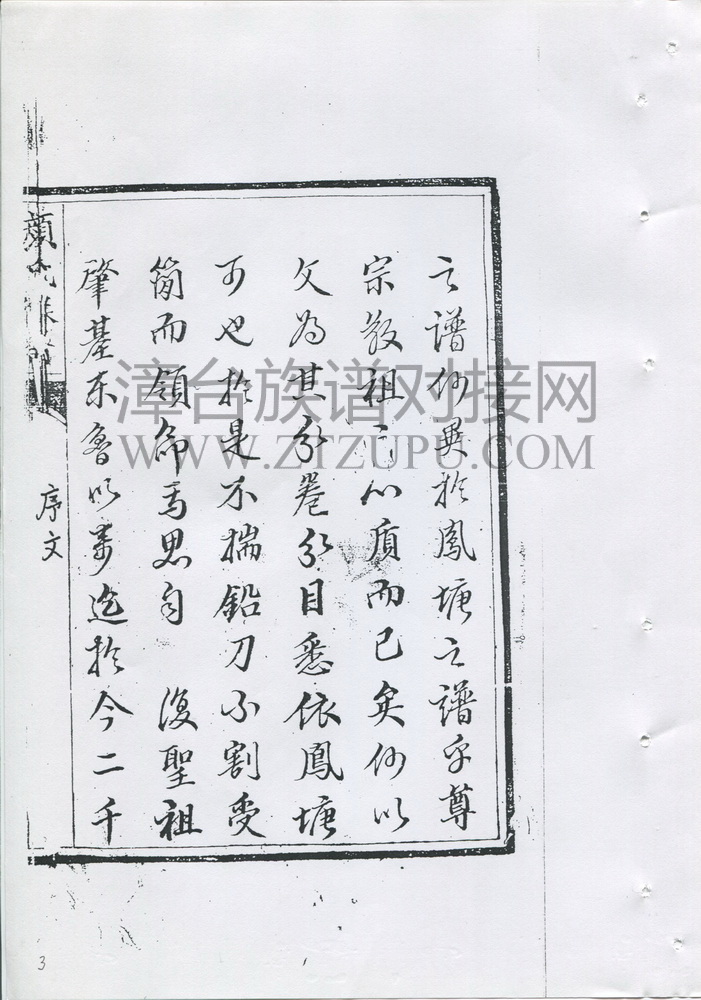 之譜何異於鳳塘之譜乎尊
宗敬祖之心質而已矣何以
文為其分卷分目悉依鳳塘
可也於是不揣鉛刀小割受
簡而領命焉思自 復聖祖
肇基東魯以來迄於今二千
序文
漳台族谱对接网
WWW.ZTZUPU.COM
3